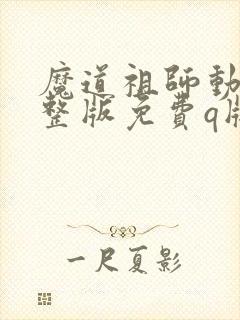 魔道祖師動
整版免費q版
一尺夏影